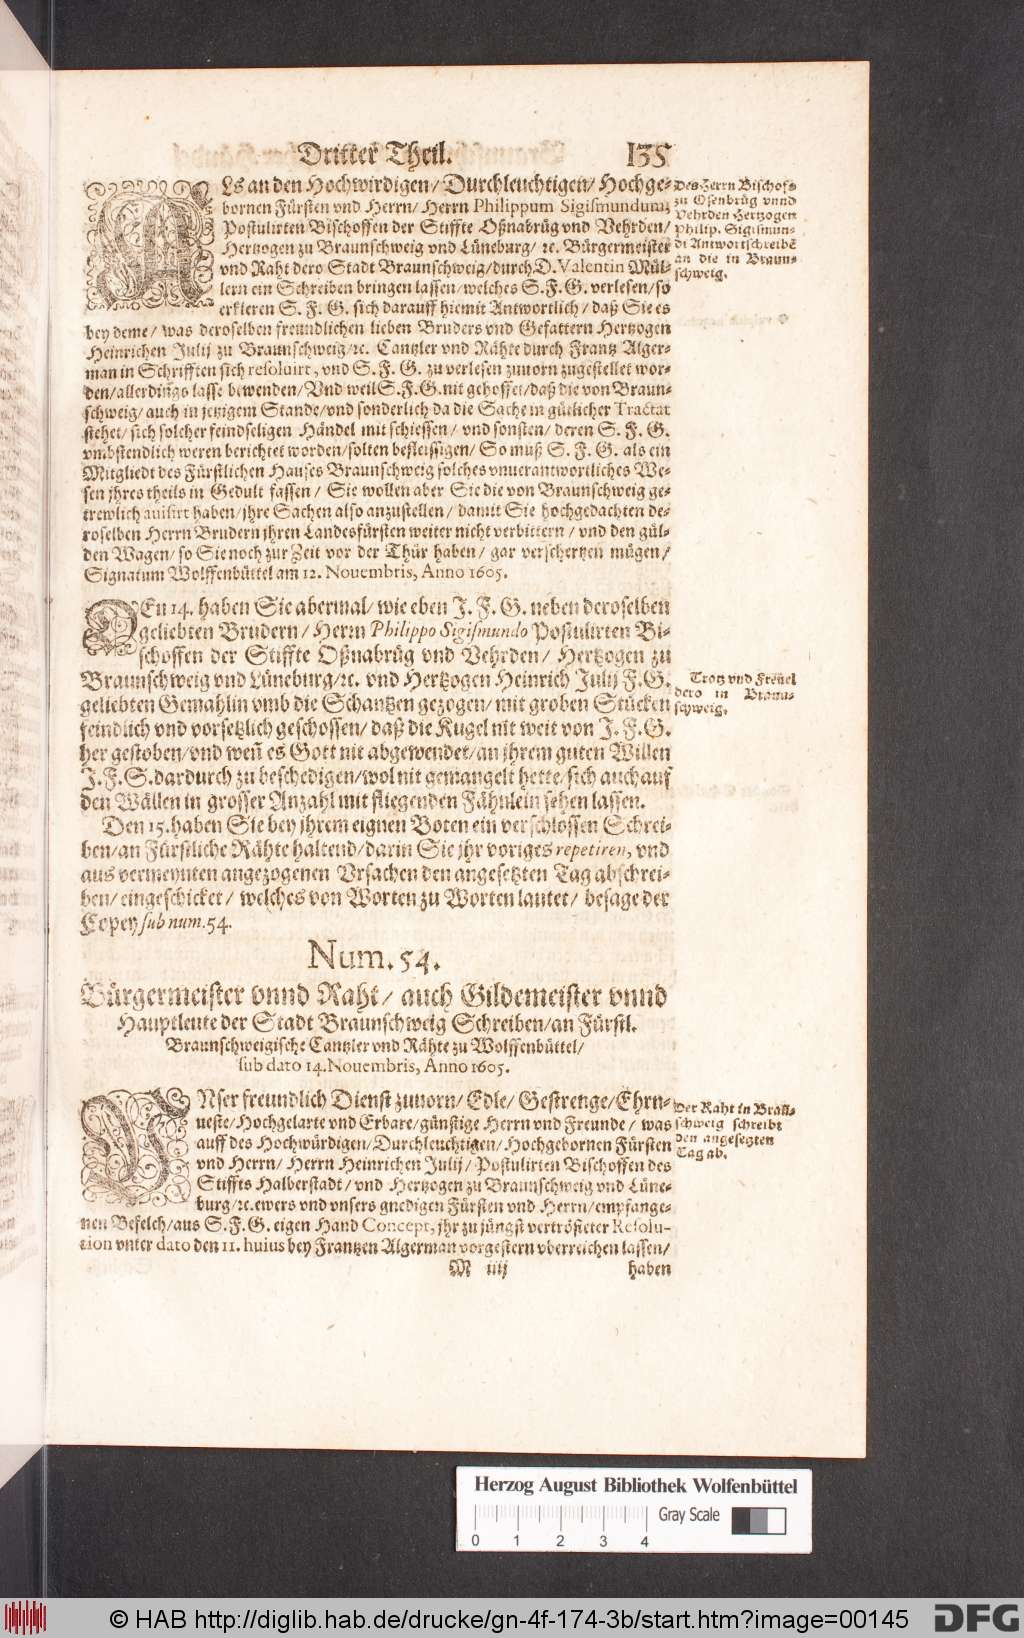 Dritter Theil. 135
ALs an den Hochwirdigen/ Durchleuchtigen/ Hochge-
bornen Fürsten vnd Herrn/ Herrn Philippum Sigismundum,
Postulirten Bischoffen der Stiffte Oßnabrüg vnd Vehrden/
Hertzogen zu Braunschweig vnd Lüneburg/ ꝛc. Bürgermeister
vnd Raht dero Stadt Braunschweig/durch D. Valentin Mül-
lern ein Schreiben bringen lassen/welches S.F.G. verlesen/so
erkleren S. F. G. sich darauff hiemit Antwortlich/ daß Sie es
bey deme/ was deroselben freundlichen lieben Bruders vnd Gefattern Hertzogen
Heinrichen Julij zu Braunschweig/ꝛc. Cantzler vnd Rähte durch Frantz Alger-
man in Schrifften sich resoluirt, vnd S. F. G. zu verlesen zuuorn zugestellet wor-
den/allerdings lasse bewenden/ Vnd weil S.F.G. nit gehoffet/daß die von Braun-
schweig/ auch in jetzigem Stande/vnd sonderlich da die Sache in gütlicher Tractat
stehet/ sich solcher feindseligen Händel mit schiessen/ vnd sonsten/ deren S. F. G.
vmbstendlich weren berichtet worden/solten befleissigen/ So muß S. F. G. als ein
Mitgliedt des Fürstlichen Hauses Braunschweig solches vnuerantwortliches We-
sen jhres theils in Gedult fassen/ Sie wollen aber Sie die von Braunschweig ge-
trewlich auisirt haben/jhre Sachen also anzustellen/ damit Sie hochgedachten de-
roselben Herrn Brudern jhren Landesfürsten weiter nicht verbittern/ vnd den gül-
den Wagen/ so Sie noch zur Zeit vor der Thür haben/ gar verschertzen mügen/
Signatum Wolffenbüttel am 12. Nouembris, Anno 1605.
Des Herrn Bischofs
zu Osenbrüg vnnd
Vehrden Hertzogen
Philip. Sigismun-
di Antwortschreibẽ
an die in Braun-
schweig.
DEn 14. haben Sie abermal/ wie eben J. F. G. neben deroselben
geliebten Brudern/ Herrn Philippo Sigismundo Postulirten Bi-
schoffen der Stiffte Oßnabrüg vnd Vehrden/ Hertzogen zu
Braunschweig vnd Lüneburg/ꝛc. vnd Hertzogen Heinrich Julij F.G.
geliebten Gemahlin vmb die Schantzen gezogen/ mit groben Stücken
feindlich vnd vorsetzlich geschossen/ daß die Kugel nit weit von J. F. G.
her gestoben/vnd weñ es Gott nit abgewendet/an jhrem guten Willen
J. F. G. dardurch zu beschedigen/wol nit gemangelt hette/sich auch auf
den Wällen in grosser Anzahl mit fliegenden Fähnlein sehen lassen.
Trotz vnd Freuel
dero in Braun-
schweig.
Den 15. haben Sie bey jhrem eignen Boten ein verschlossen Schrei-
ben/an Fürstliche Rähte haltend/darin Sie jhr voriges repetiren, vnd
aus vermeynten angezogenen Vrsachen den angesetzten Tag abschrei-
ben/eingeschicket/ welches von Worten zu Worten lautet/ besage der
Copey sub num. 54.
Num. 54.
Bürgermeister vnnd Raht/ auch Gildemeister vnnd
Hauptleute der Stadt Braunschweig Schreiben/an Fürstl.
Braunschweigische Cantzler vnd Rähte zu Wolffenbüttel/
sub dato 14. Nouembris, Anno 1605.
VNser freundlich Dienst zuuorn/ Edle/ Gestrenge/ Ehrn-
ueste/Hochgelarte vnd Erbare/günstige Herrn vnd Freunde/ was
auff des Hochwürdigen/Durchleuchtigen/Hochgebornen Fürsten
vnd Herrn/ Herrn Heinrichen Julij/ Postulirten Bischoffen des
Stiffts Halberstadt/ vnd Hertzogen zu Braunschweig vnd Lüne-
burg/ꝛc. ewers vnd vnsers gnedigen Fürsten vnd Herrn/empfange-
nen Befelch/aus S.F.G. eigen Hand Concept, jhr zu jüngst vertrösteter Resolu-
tion vnter dato den 11. huius bey Frantzen Algerman vorgestern vberreichen lassen/
Der Raht in Braũ-
schweig schreibt
den angesetzten
Tag ab.
M iiij haben
Herzog August Bibliothek Wolfenbüttel
0 1 2 3 4
Gray Scale
© HAB http://diglib.hab.de/drucke/gn-4f-174-3b/start.htm?image=00145
DFG